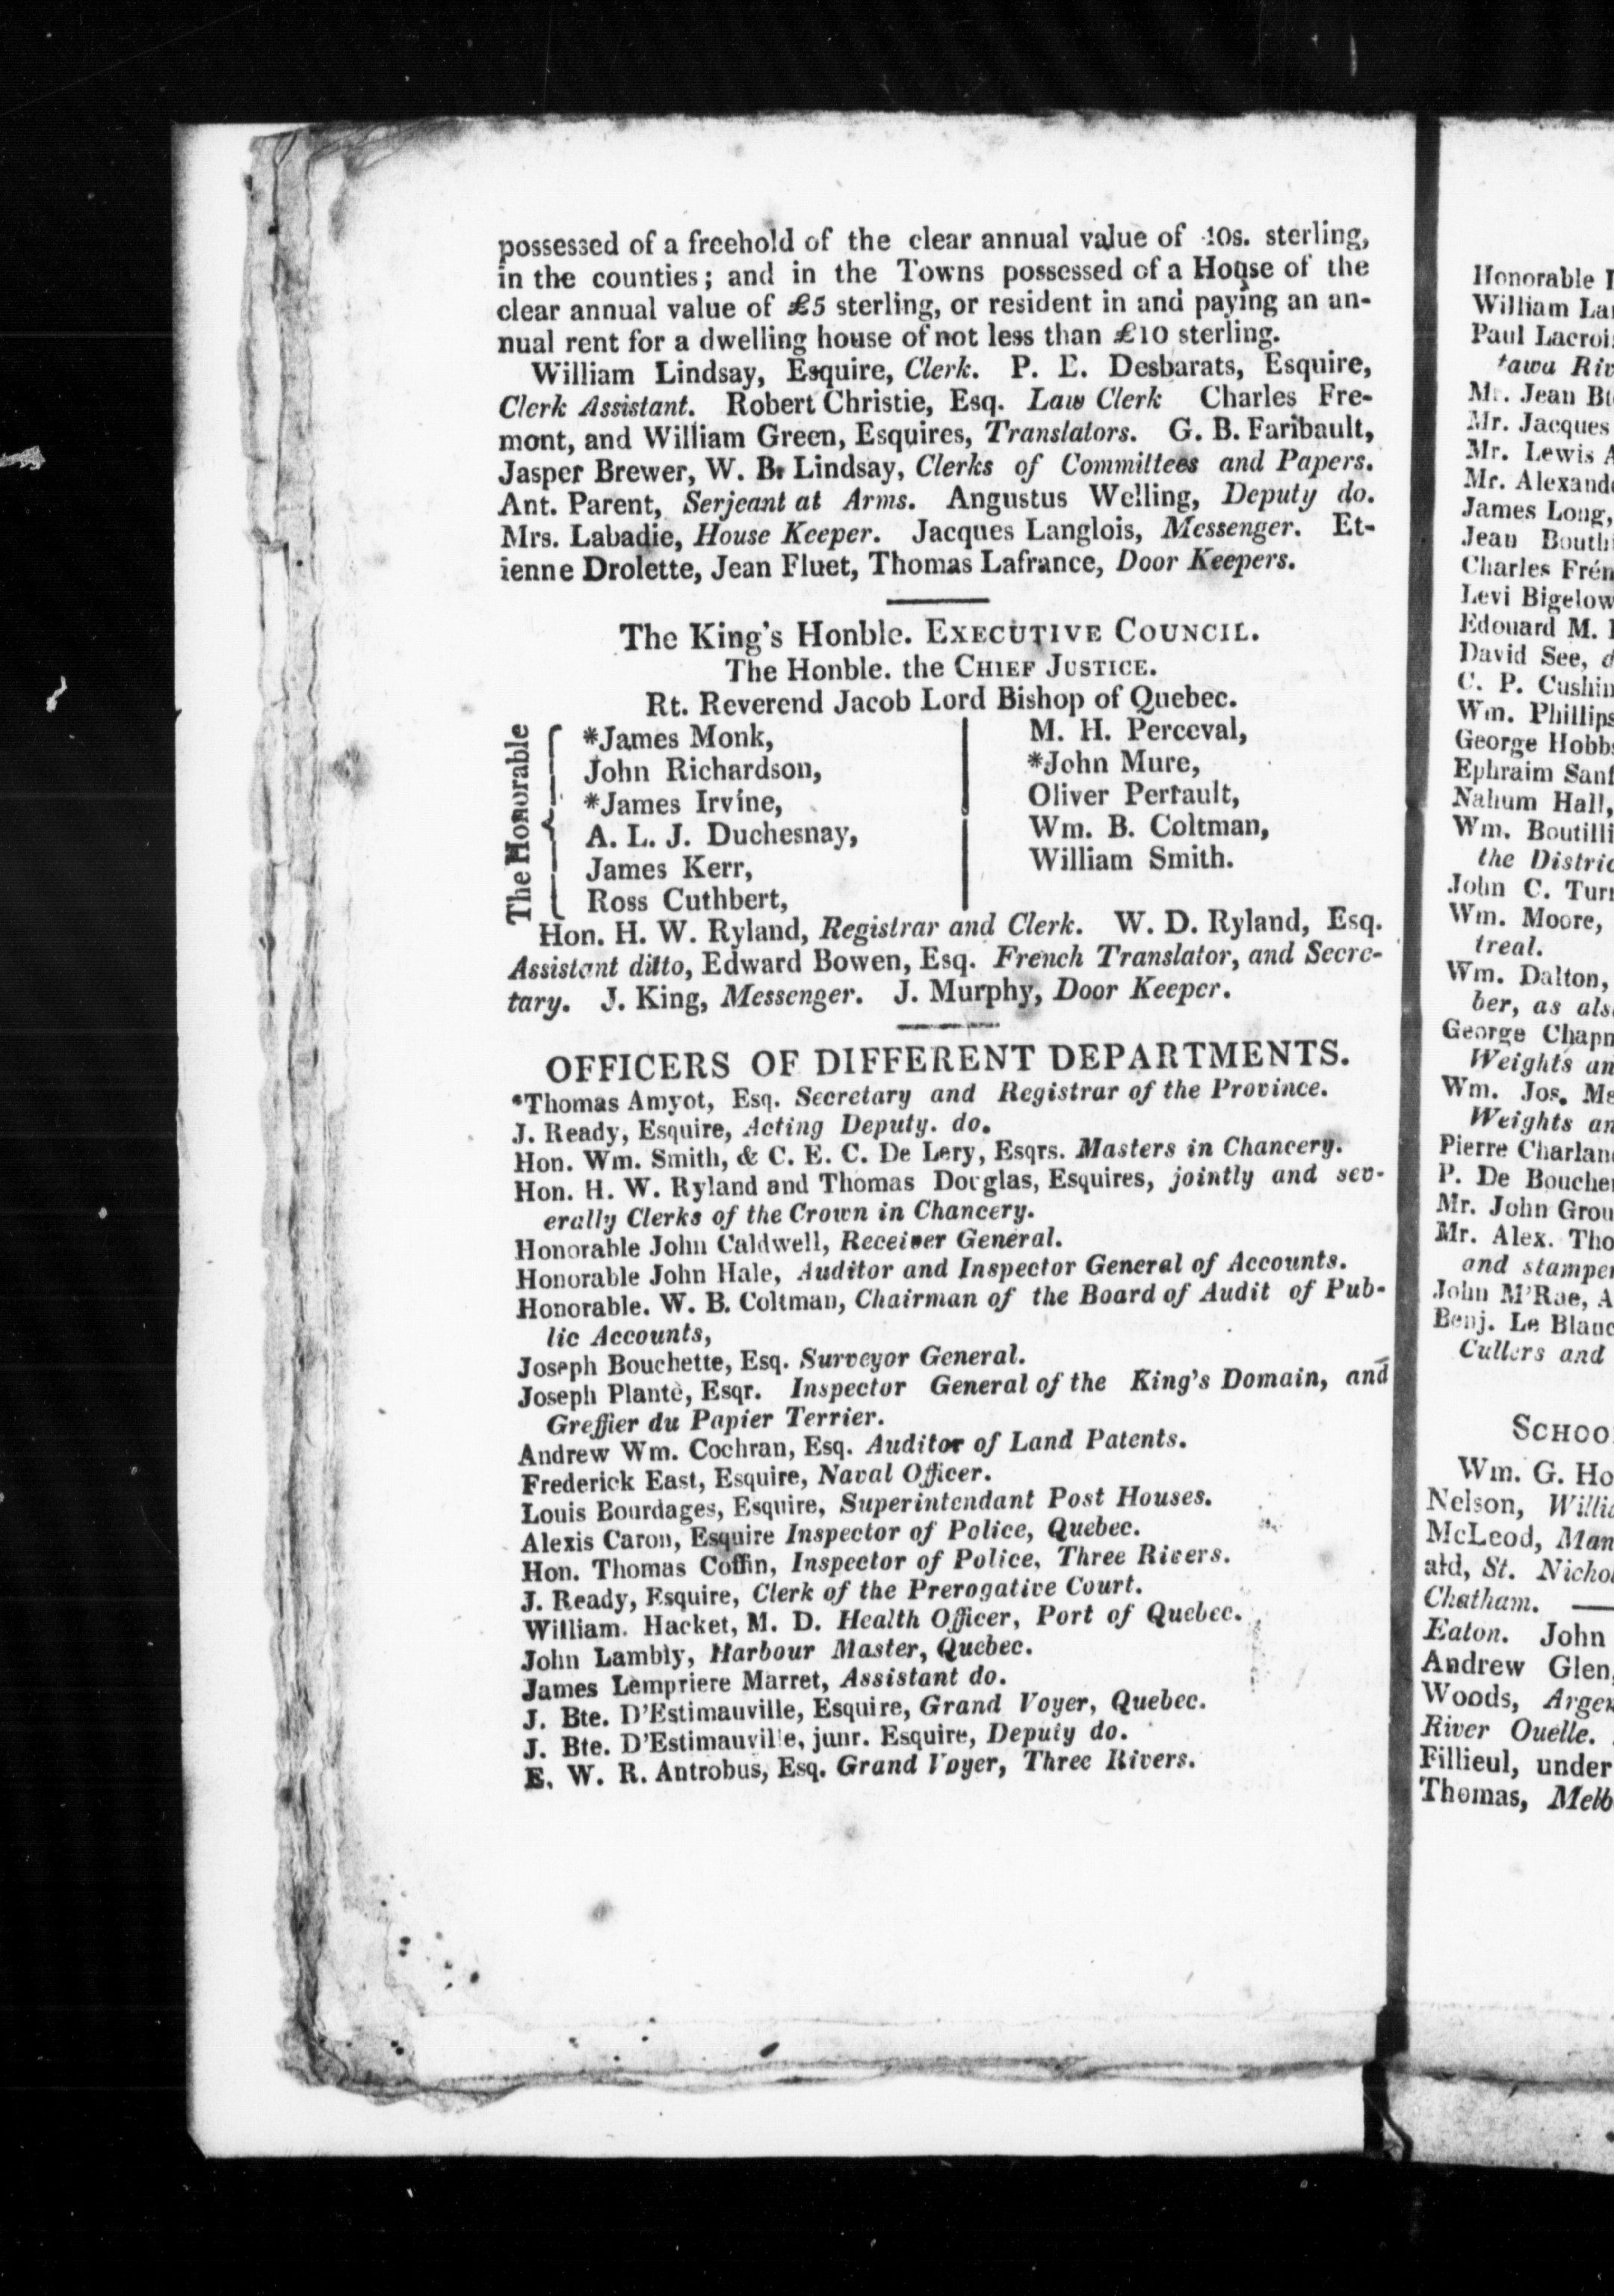 possessed of a freehold of the clear annual value of 40s. sterling,
in the counties; and in the Towns possessed of a House of the
clear annual value of £5 sterling, or resident in and paying an an-
nual rent for a dwelling house of not less than £10 sterling.
William Lindsay, Esquire, Clerk. P. E. Desbarats, Esquire,
Clerk Assistant. Robert Christie, Esq. Law Clerk Charles Fre-
mont, and William Green, Esquires, Translators. G. B. Faribault,
Jasper Brewer, W. B. Lindsay, Clerks of Committees and Papers.
Ant. Parent, Serjeant at Arms. Angustus Welling, Deputy do.
Mrs. Labadie, House Keeper. Jacques Langlois, Messenger. Et-
ienne Drolette, Jean Fluet, Thomas Lafrance, Door Keepers.
The King's Honble. EXECUTIVE COUNCIL.
The Honble. the CHIEF JUSTICE.
Rt. Reverend Jacob Lord Bishop of Quebec.
The Honorable
*James Monk,
John Richardson,
*James Irvine,
A. L. J. Duchesnay,
James Kerr,
Ross Cuthbert,
M. H. Perceval,
*John Mure,
Oliver Perrault,
Wm. B. Coltman,
William Smith.
Hon. H. W. Ryland, Registrar and Clerk. W. D. Ryland, Esq.
Assistant ditto, Edward Bowen, Esq. French Translator, and Secre-
tary. J. King, Messenger. J. Murphy, Door Keeper.
OFFICERS OF DIFFERENT DEPARTMENTS.
*Thomas Amyot, Esq. Secretary and Registrar of the Province.
J. Ready, Esquire, Acting Deputy. do.
Hon. Wm. Smith, & C. E. C. De Lery, Esqrs. Masters in Chancery.
Hon. H. W. Ryland and Thomas Douglas, Esquires, jointly and sev-
erally Clerks of the Crown in Chancery.
Honorable John Caldwell, Receiver General.
Honorable John Hale, Auditor and Inspector General of Accounts.
Honorable. W. B. Coltman, Chairman of the Board of Audit of Pub-
lic Accounts,
Joseph Bouchette, Esq. Surveyor General.
Joseph Plantè, Esqr. Inspector General of the King's Domain, and
Greffier du Papier Terrier.
Andrew Wm. Cochran, Esq. Auditor of Land Patents.
Frederick East, Esquire, Naval Officer.
Louis Bourdages, Esquire, Superintendant Post Houses.
Alexis Caron, Esquire Inspector of Police, Quebec.
Hon. Thomas Coffin, Inspector of Police, Three Rivers.
J. Ready, Esquire, Clerk of the Prerogative Court.
William. Hacket, M. D. Health Officer, Port of Quebec.
John Lambly, Harbour Master, Quebec.
James Lempriere Marret, Assistant do.
J. Bte. D'Estimauville, Esquire, Grand Voyer, Quebec.
J. Bte. D'Estimauville, junr. Esquire, Deputy do.
E. W. R. Antrobus, Esq. Grand Voyer, Three Rivers.
Honorable
William
Paul
Riv
Mr. Jean
Mr. Jacques
Mr. Lewis
Mr.
James Long,
Jean
Charles
Levi Bigelow
Edouard M.
David See,
C. P.
Wm. Phillips
George
Ephraim
Nahum Hall,
Wm.
the
John C.
Wm. Moore,
treal.
Wm. Dalton,
ber, as
George
Weights
Wm. Jos.
Weights
Pierre
P. De
Mr. John
Mr. Alex.
and
John M'Rae,
Benj. Le
Cullers and
Wm. G.
Nelson,
McLeod,
ald, St.
Chatham.
Eaton. John
Andrew Glen,
Woods,
River Ouelle.
Fillieul, under
Thomas,